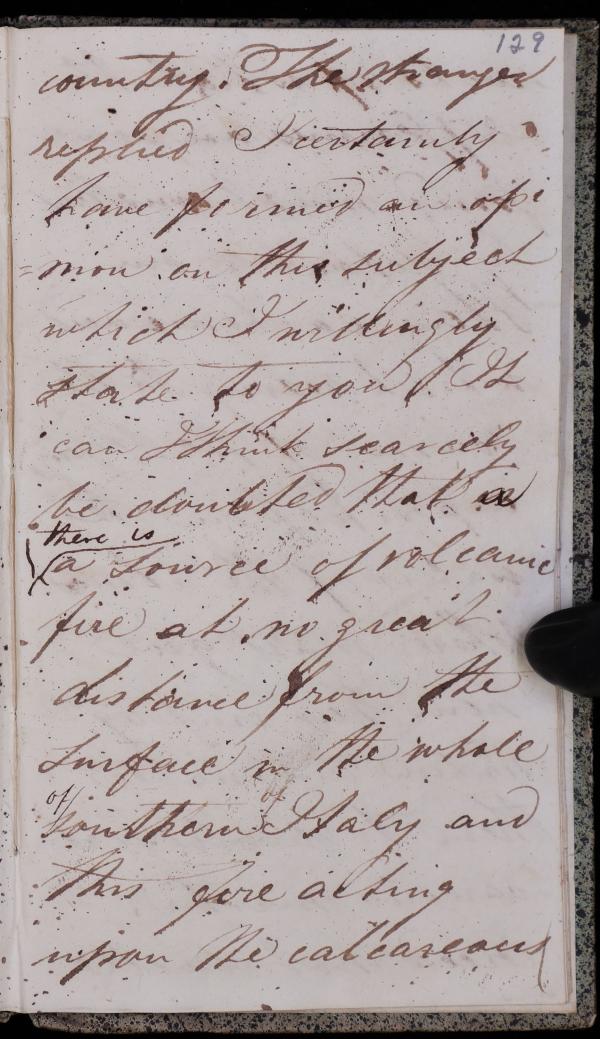 129
country. The stranger
replied I certainly
have formed an opi
=nion on this subject
which I willingly
state to you. It
can I think scarcely
be doubted that a
there is
a source of volcanic
fire at no great
distance from the
surface in the whole
of of
southern Italy and
this fire acting
upon the calcareous